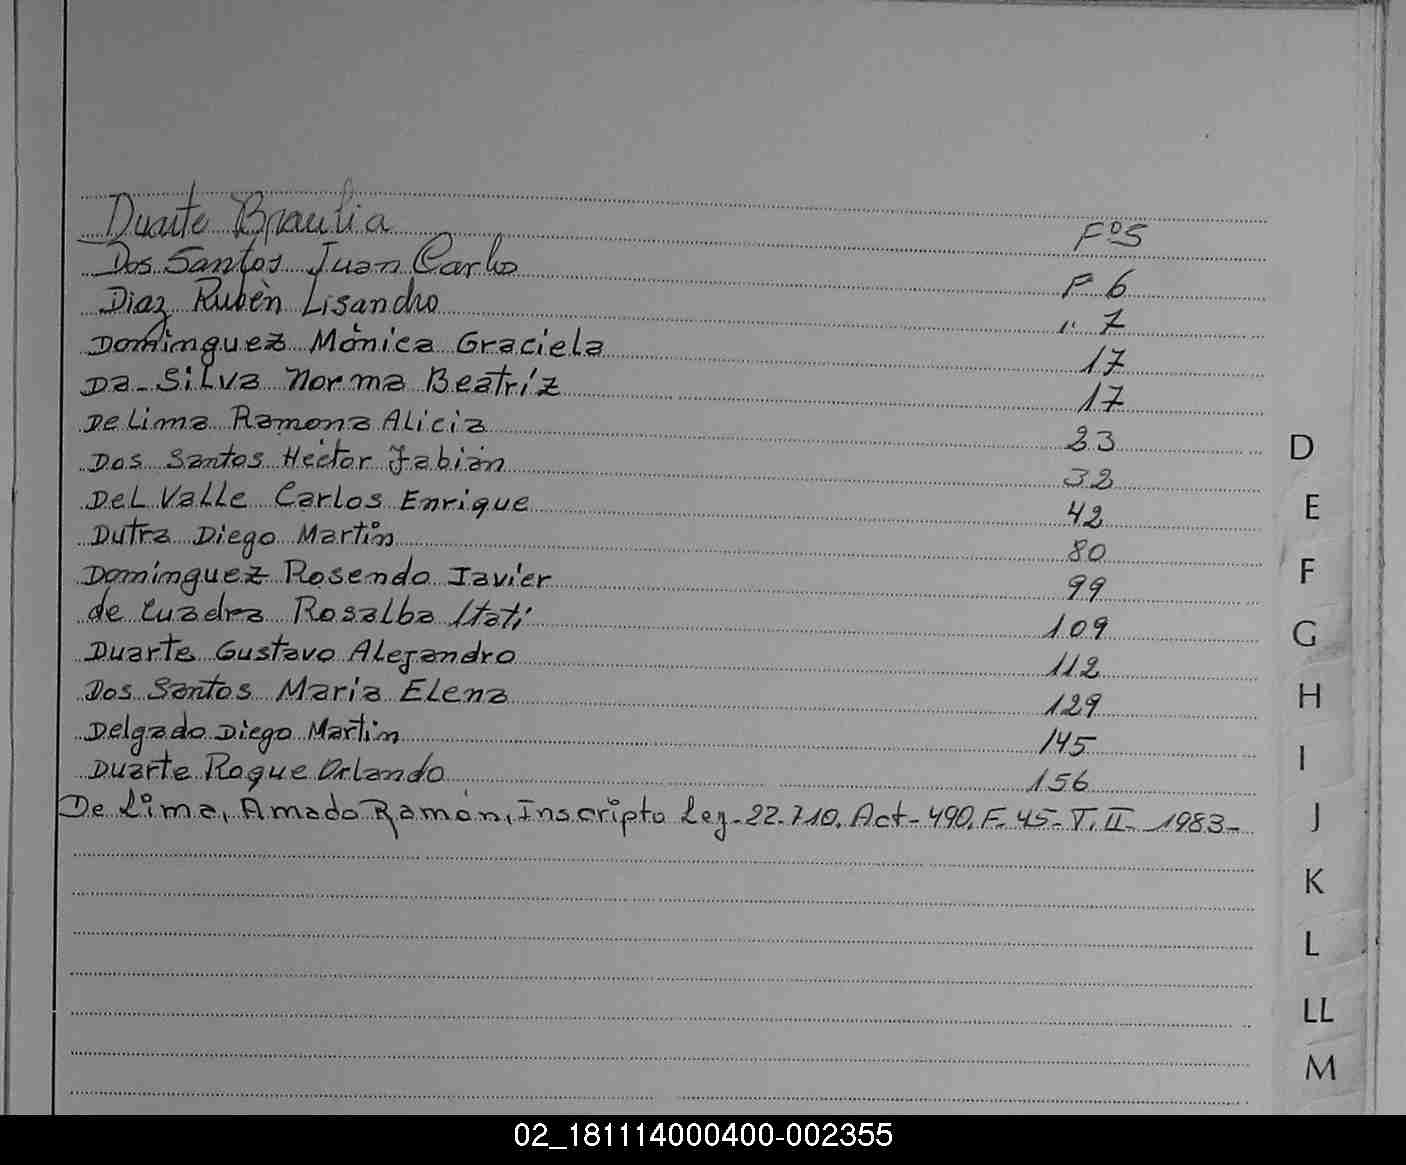 Duarte Braulia F°5
Dos Santos Juan Carlo F 6
Diaz Rubén Lisandro " 7
Dominguez Mónica Graciela 17
Da-Silva Norma Beatríz 17
De Lima Ramona Alicia 23
Dos Santos Héctor Fabián 32
Del Valle Carlos Enrique 42
Dutra Diego Martín 80
Dominguez Rosendo Javier 99
de Cuadra Rosalba Itatí 109
Duarte Gustavo Alejandro 112
Dos Santos María Elena 129
Delgado Diego Martin 145
Duarte Roque Orlando 156
De Lima, Amado Ramón, Inscripto Ley-22.710. Act-490. F. 45- T. II- 1983-
D
E
F
G
H
I
J
K
L
LL
M
02_181114000400-002355